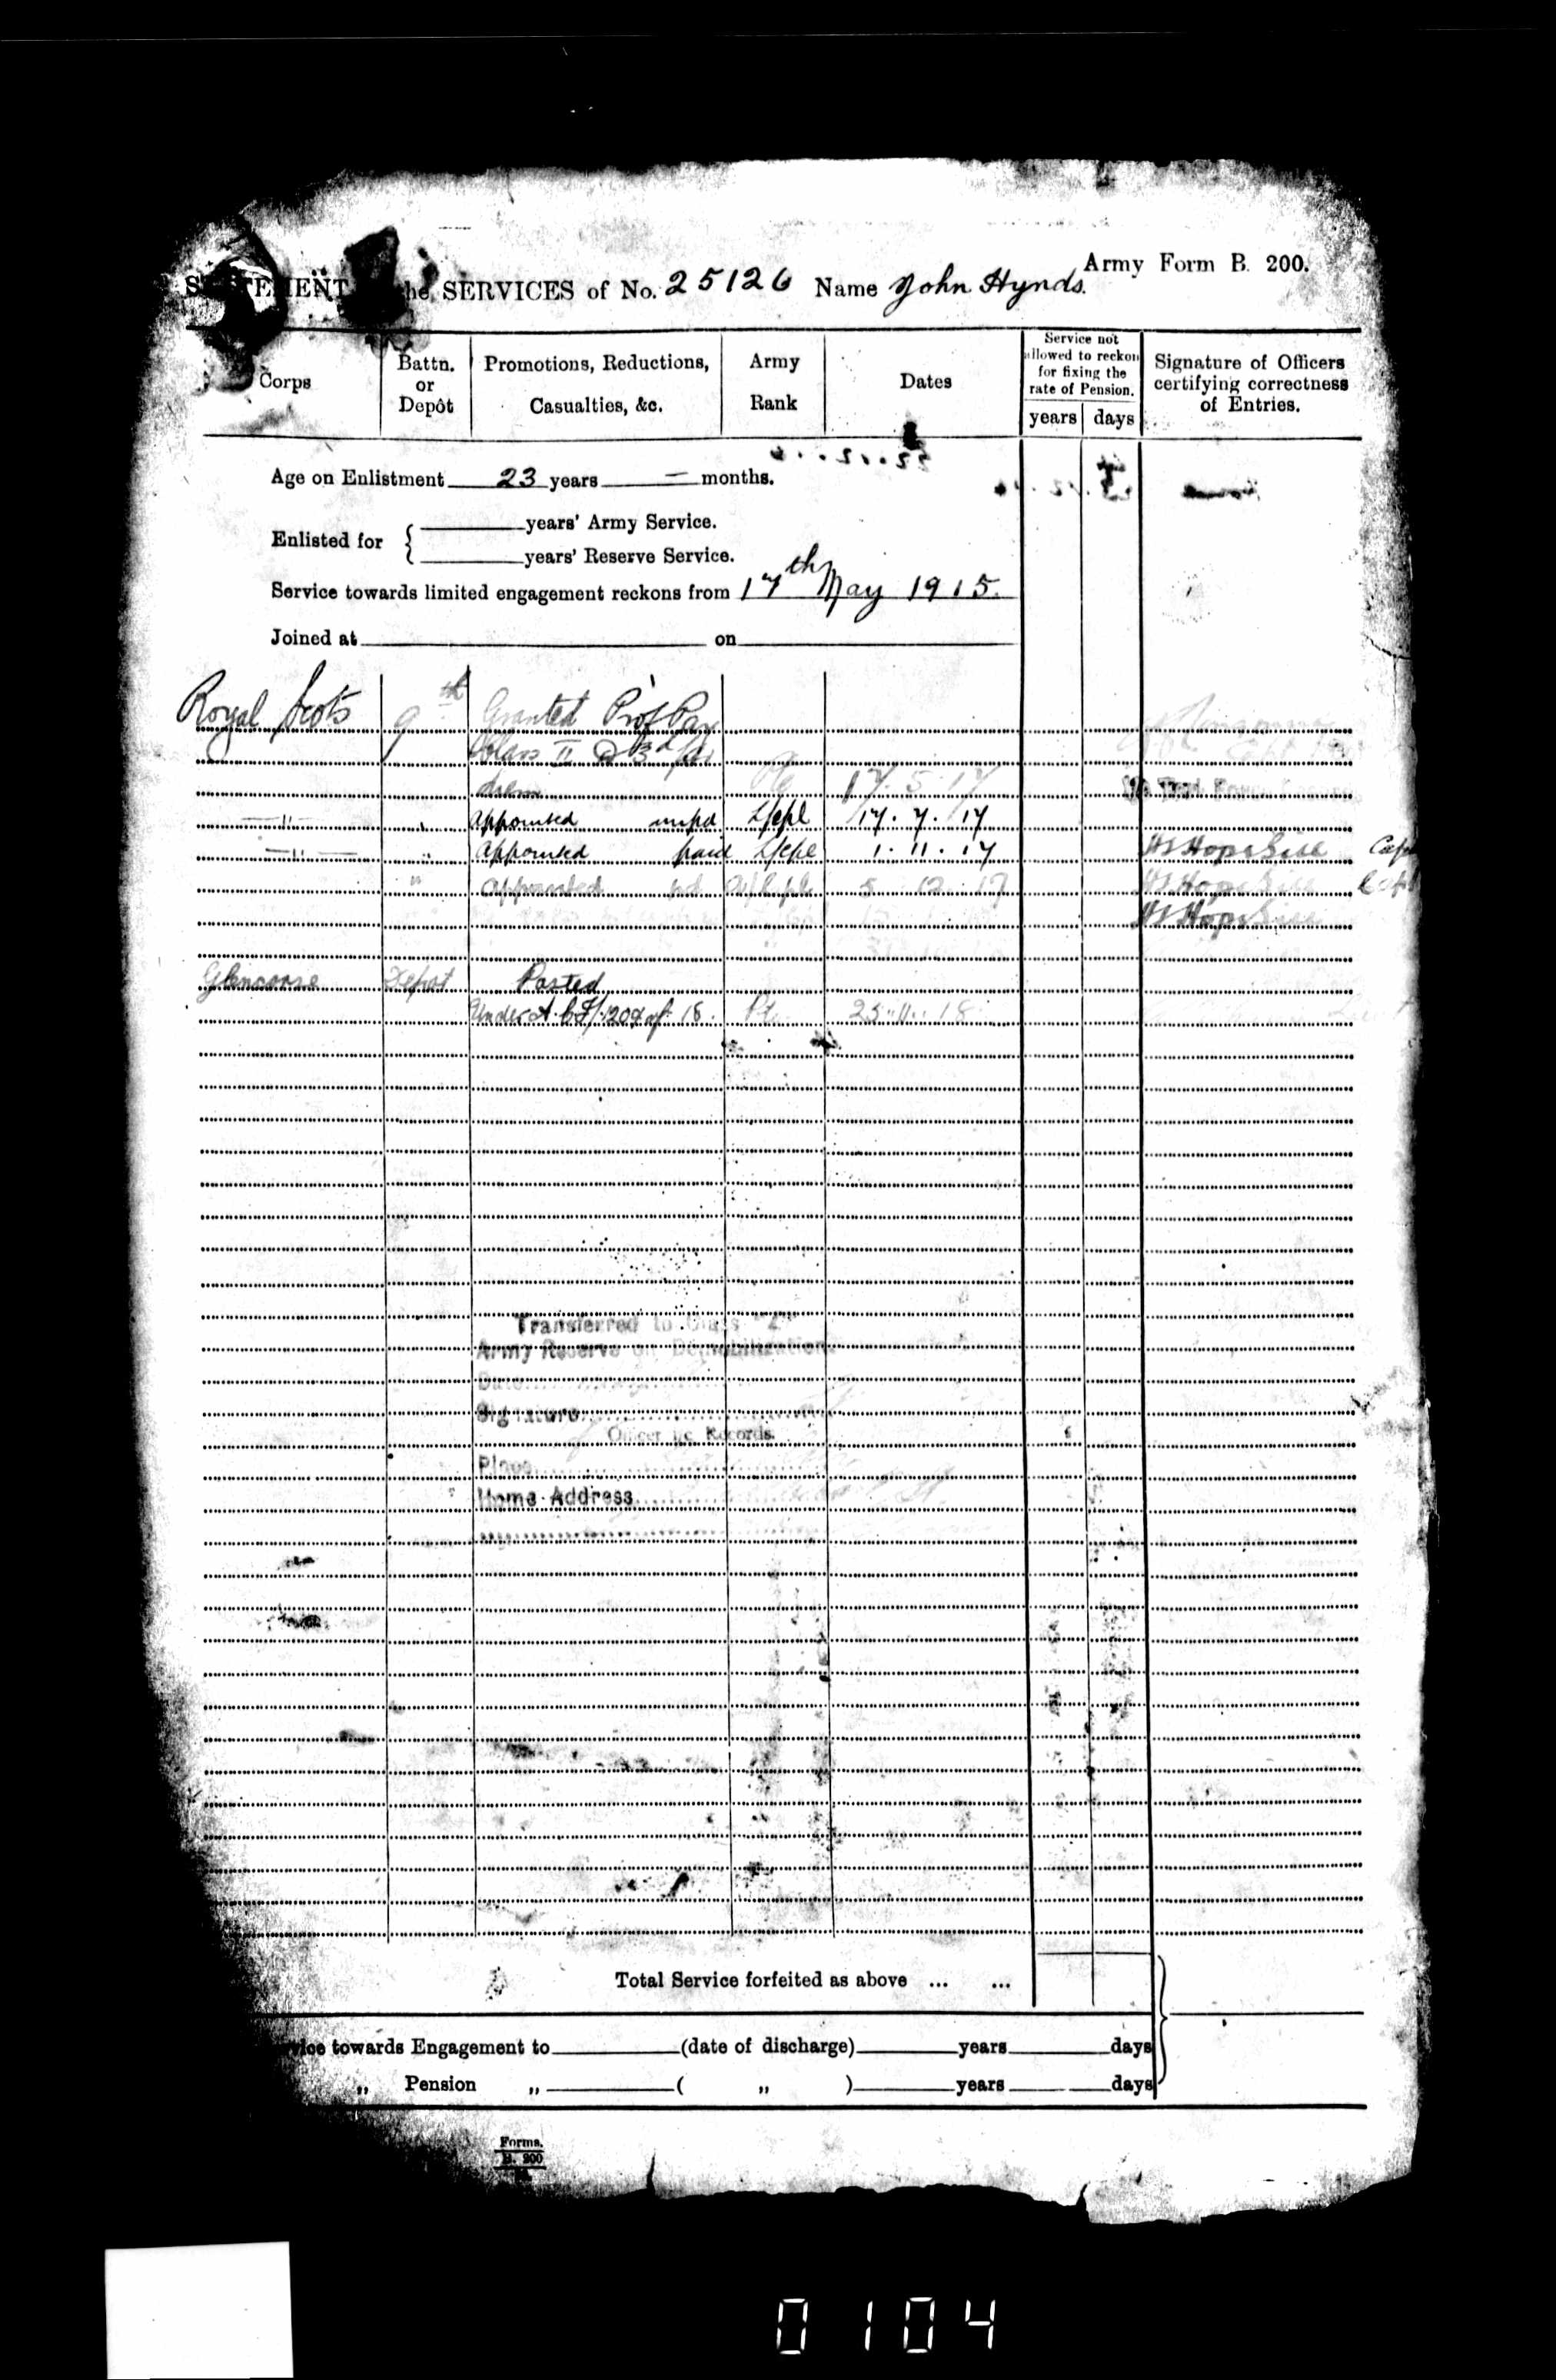 Army Form B. 200.
he SERVICES of No. 25126 Name John Hynds.
Corps
Battn. or Depôt
Promotions, Reductions, Casualties, &c.
Army Rank
Dates
Service not allowed to reckon for fixing the rate of Pension.
years days
Signature of Officers certifying correctness of Entries.
Age on Enlistment 23 years — months.
Enlisted for { years' Army Service.
years' Reserve Service.
Service towards limited engagement reckons from 17th May 1915.
Joined at on
Royal Scots 9th Granted Prof Pay
Class II @ 3d
17. 5. 17
—"— " appointed unpd L/cpl 17. 7. 17
—"— " appointed paid L/cpl 1. 11. 17 Capt
" appointed pd 5 12 17
Glencorse Depot Posted
Under A.C.I. 1209 of 18. Pte 25. 11. 18
Transferred to Class "Z"
Army Reserve on Demobilization.
Date
Signature
Officer i/c Records.
Place
Home Address
Total Service forfeited as above ... ...
vice towards Engagement to (date of discharge) years days
„ Pension „ ( „ ) years days
Forms.
B. 200
0104